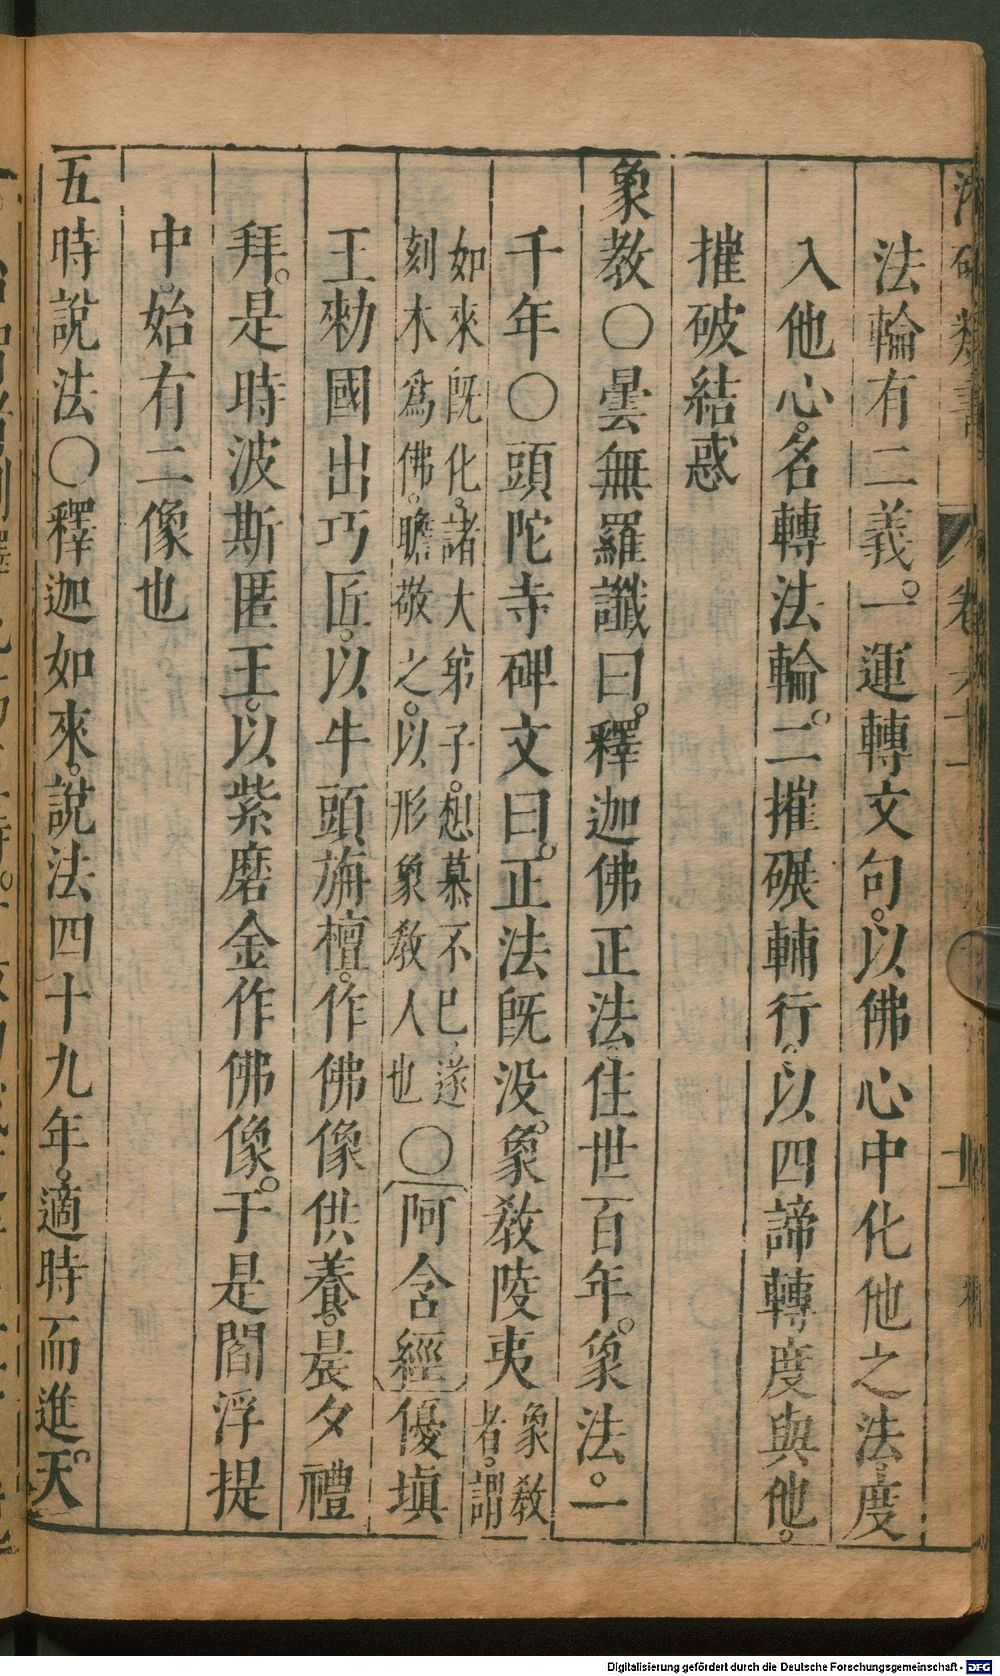 法輪有二義。一運轉文句。以佛心中化他之法。度
入他心。名轉法輪。二摧碾輔行。以四諦轉度與他。
摧破結惑
象教〇曇無羅讖曰。釋迦佛正法。住世一百年。象法。一
千年〇頭陀寺碑文曰。正法既没。象教陵夷象教者。謂
如來既化。諸大弟子。想慕不已。遂刻木為佛。瞻敬之。以形象教人也〇阿含經優填
王勑國出巧匠。以牛頭旃檀。作佛像供養。晨夕禮
拜。是時波斯匿王。以紫磨金。作佛像。于是閻浮提
中。始有二像也
五時說法〇釋迦如來。說法四十九年。適時而進。天
Digitalisierung gefördert durch die Deutsche Forschungsgemeinschaft - DFG